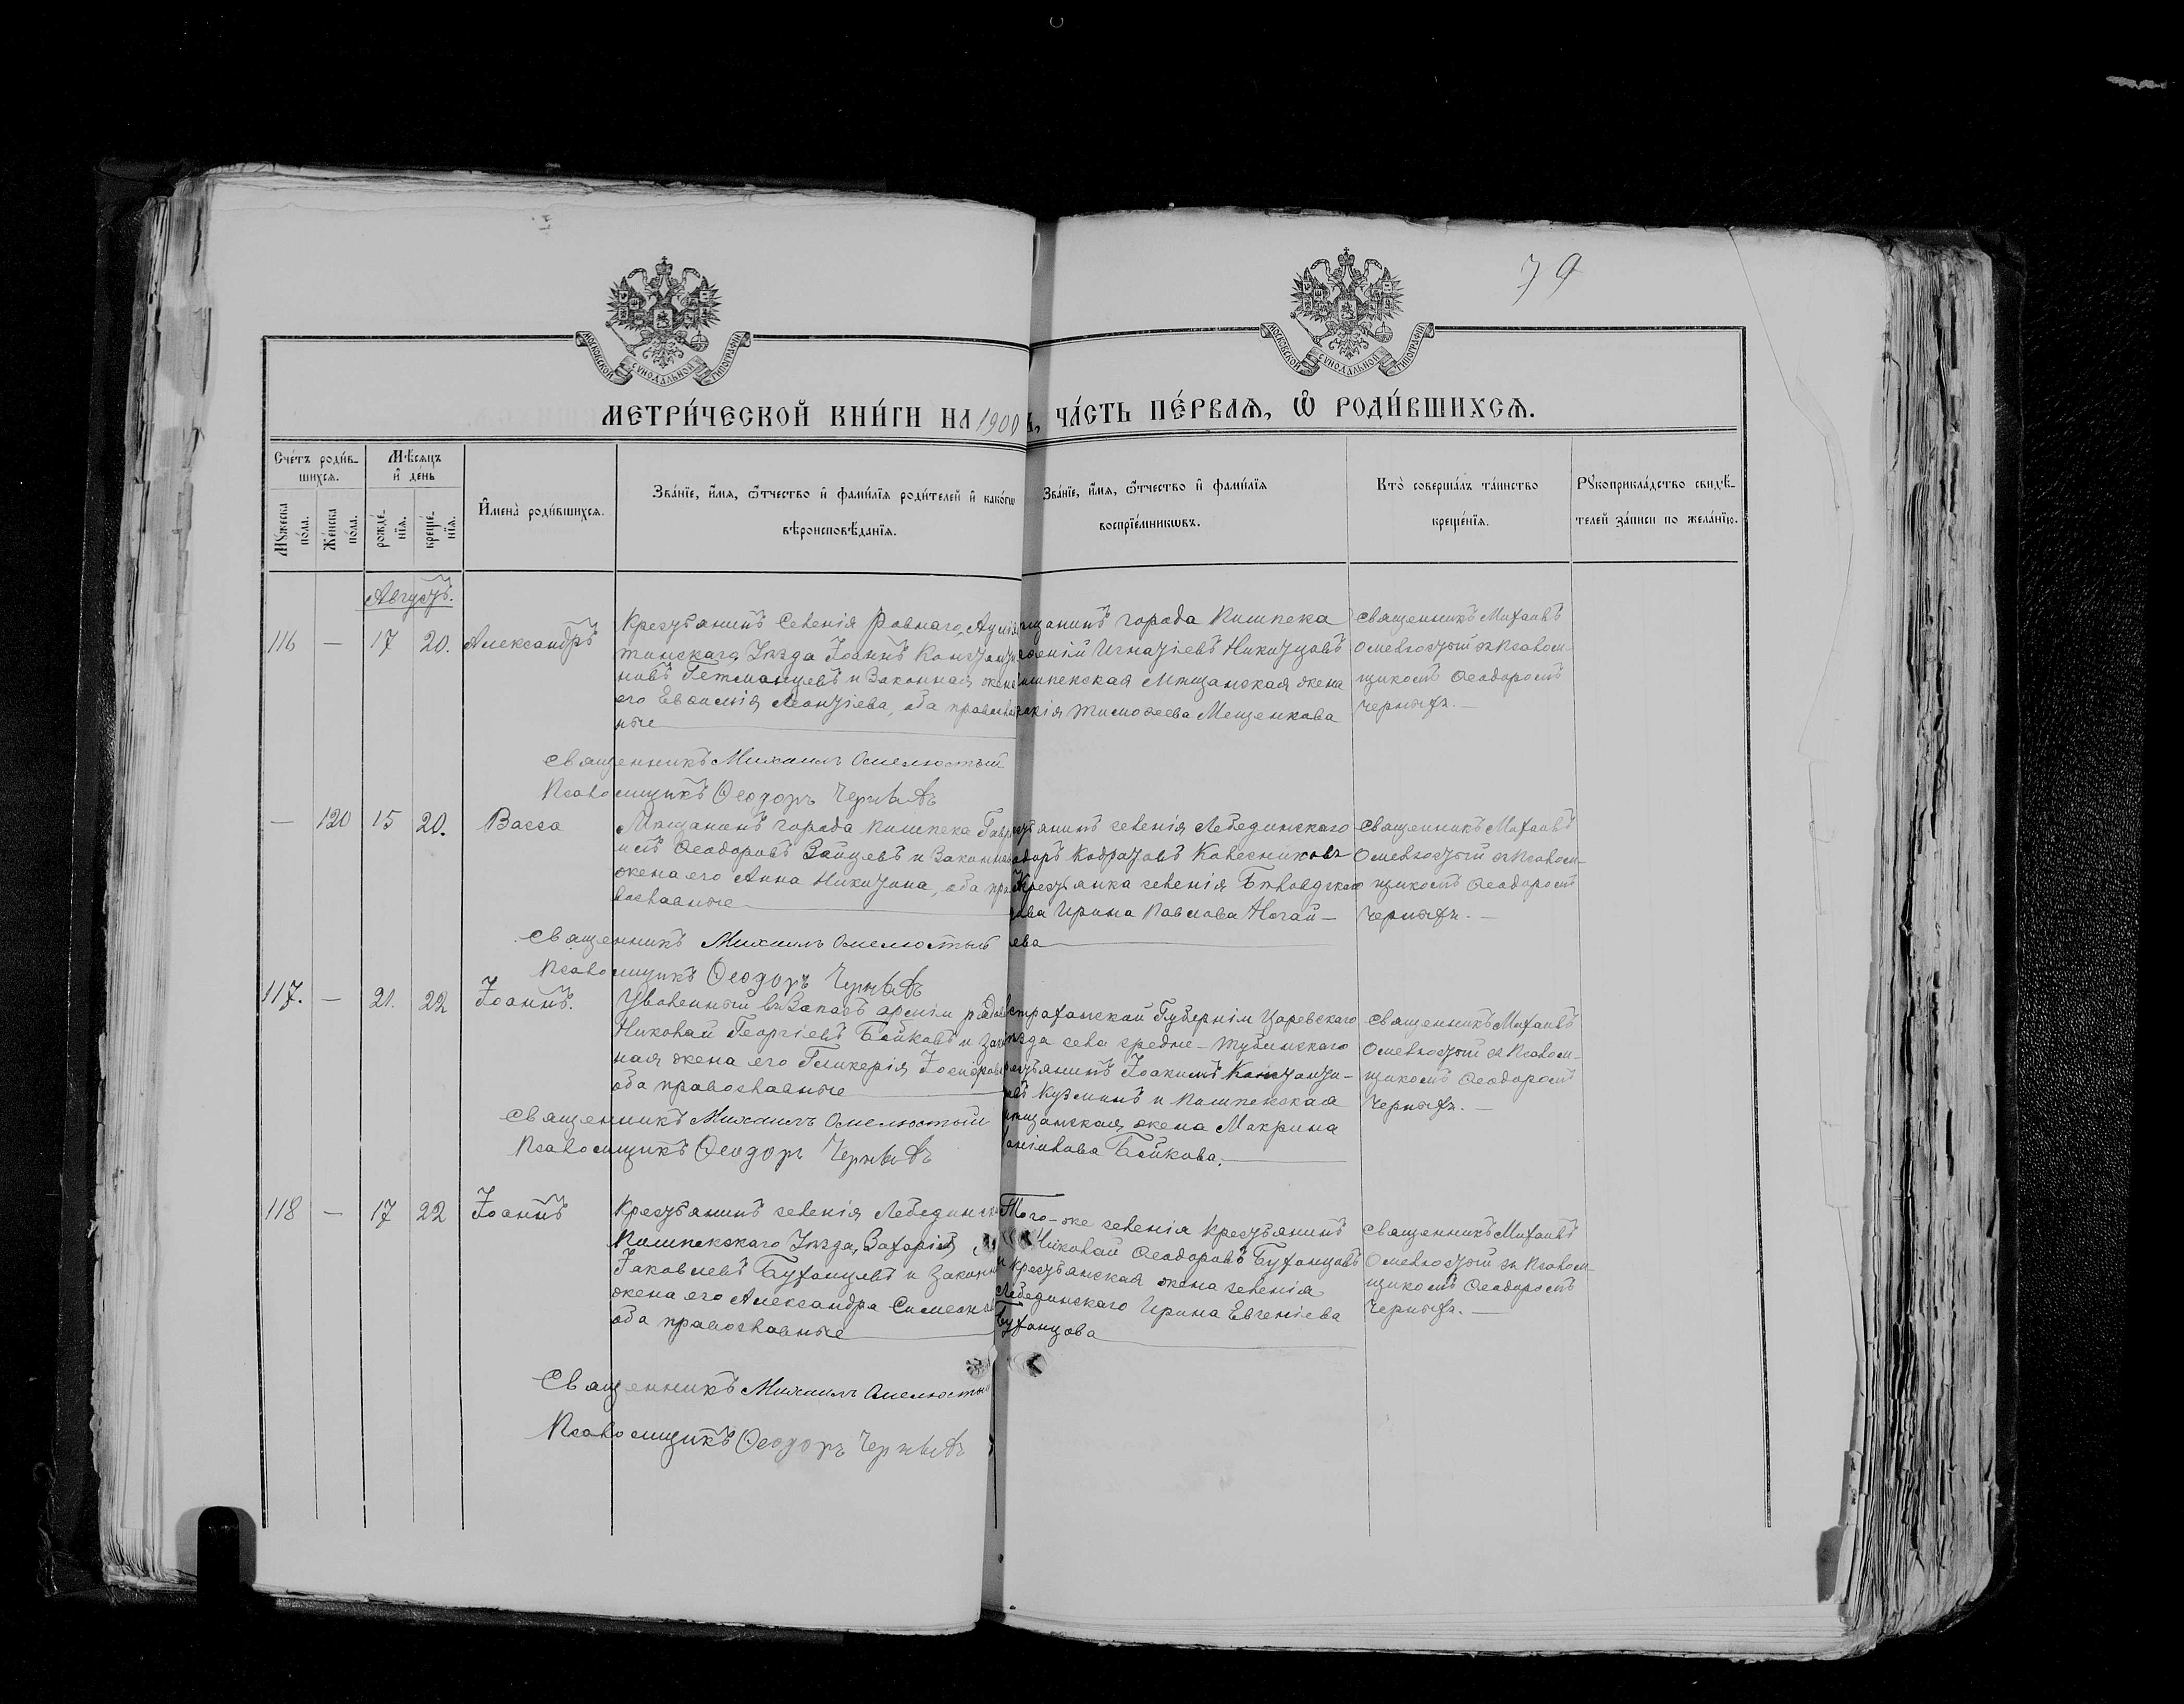 79
МОСКОВСКОЙ СѴНОДАЛЬНОЙ ТИПОГРАФІИ
МОСКОВСКОЙ СѴНОДАЛЬНОЙ ТИПОГРАФІИ
МЕТРИ́ЧЕСКОЙ КНИ́ГИ НА 1900 ЧА́СТЬ ПЕ́РВАЯ, Ѽ РОДИ́ВШИХСЯ.
Сче́тъ роди́в-
шихся.
Мѣ́сяцъ
и҆ де́нь
Мꙋ́жеска по́ла.
Же́нска по́ла.
рожде́-
нїя.
креще́-
нїя.
И҆мена̀ роди́вшихся.
Зва́нїе, и҆́мя, ѻ҆́тчество и҆ фами́лїя роди́телей и҆ како́гѡ
вѣроисповѣ́данїя.
Зва́нїе, и҆́мя, ѻ҆́тчество и҆ фами́лїя
воспрїе́мникѡвъ.
Кто̀ соверша́лъ та́инство
креще́нїя.
Рꙋкоприкла́дство свидѣ́-
телей за́писи по жела́нїю.
Августъ.
116 — 17 20. Александръ
Крестьянинъ Селенія Ровнаго, Аулiэ
тинскаго Уѣзда Іоаннъ Константи
новъ Гетманцевъ и Законная жена
его Евфимія Леонтіева, оба православ
ные
щанинъ города Пишпека
Игнатіевъ Никитцовъ
ишпекская Мѣщанская жена
Тимофеева Мещенкова
Священникъ Михаилъ
Омелюстый съ Псалом-
щикомъ Ѳеодоромъ
Черныхъ. —
Священникъ Михаилъ Омелюстый
Псаломщикъ Ѳеодоръ Черныхъ
— 120 15 20. Васса
Мѣщанинъ города Пишпека Гаври
илъ Ѳеодоровъ Зайцевъ и Законная
жена его Анна Никитина, оба пра
вославные
стьянинъ селенія Лебединскаго
одоръ Кодратовъ Колесниковъ
Крестьянка селенія Бѣловодскаго
Ирина Павлова Ногай-
ева
Священникъ Михаилъ
Омелюстый съ Псалом-
щикомъ Ѳеодоромъ
Черныхъ. —
Священникъ Михаилъ Омелюстый
Псаломщикъ Ѳеодоръ Черныхъ
117. — 21. 22 Іоаннъ.
Уволенный въ Запасъ арміи рядов
Николай Георгіевъ Бойковъ и Закон
ная жена его Гликерія Іосифова
оба православные
страханской Губерніи Царевскаго
ѣзда села средне-Тубинскаго
рестьянинъ Іоакимъ Константи-
овъ Кузминъ и Пишпекская
ѣщанская жена Макрина
Бойкова.
Священникъ Михаилъ
Омелюстый съ Псалом-
щикомъ Ѳеодоромъ
Черныхъ. —
Священникъ Михаилъ Омелюстый
Псаломщикъ Ѳеодоръ Черныхъ
118 — 17 22 Іоаннъ
Крестьянинъ селенія Лебединска
Пишпекскаго Уѣзда, Захарія
Іаковлевъ Буханцевъ и Законная
жена его Александра Симеонова
оба православные
Того-же селенія Крестьянинъ
Николай Ѳеодоровъ Буханцовъ
и крестьянская жена селенія
Лебединскаго Ирина Евгеніева
Буханцова
Священникъ Михаилъ
Омелюстый съ Псалом-
щикомъ Ѳеодоромъ
Черныхъ. —
Священникъ Михаилъ Омелюсты
Псаломщикъ Ѳеодоръ Черныхъ